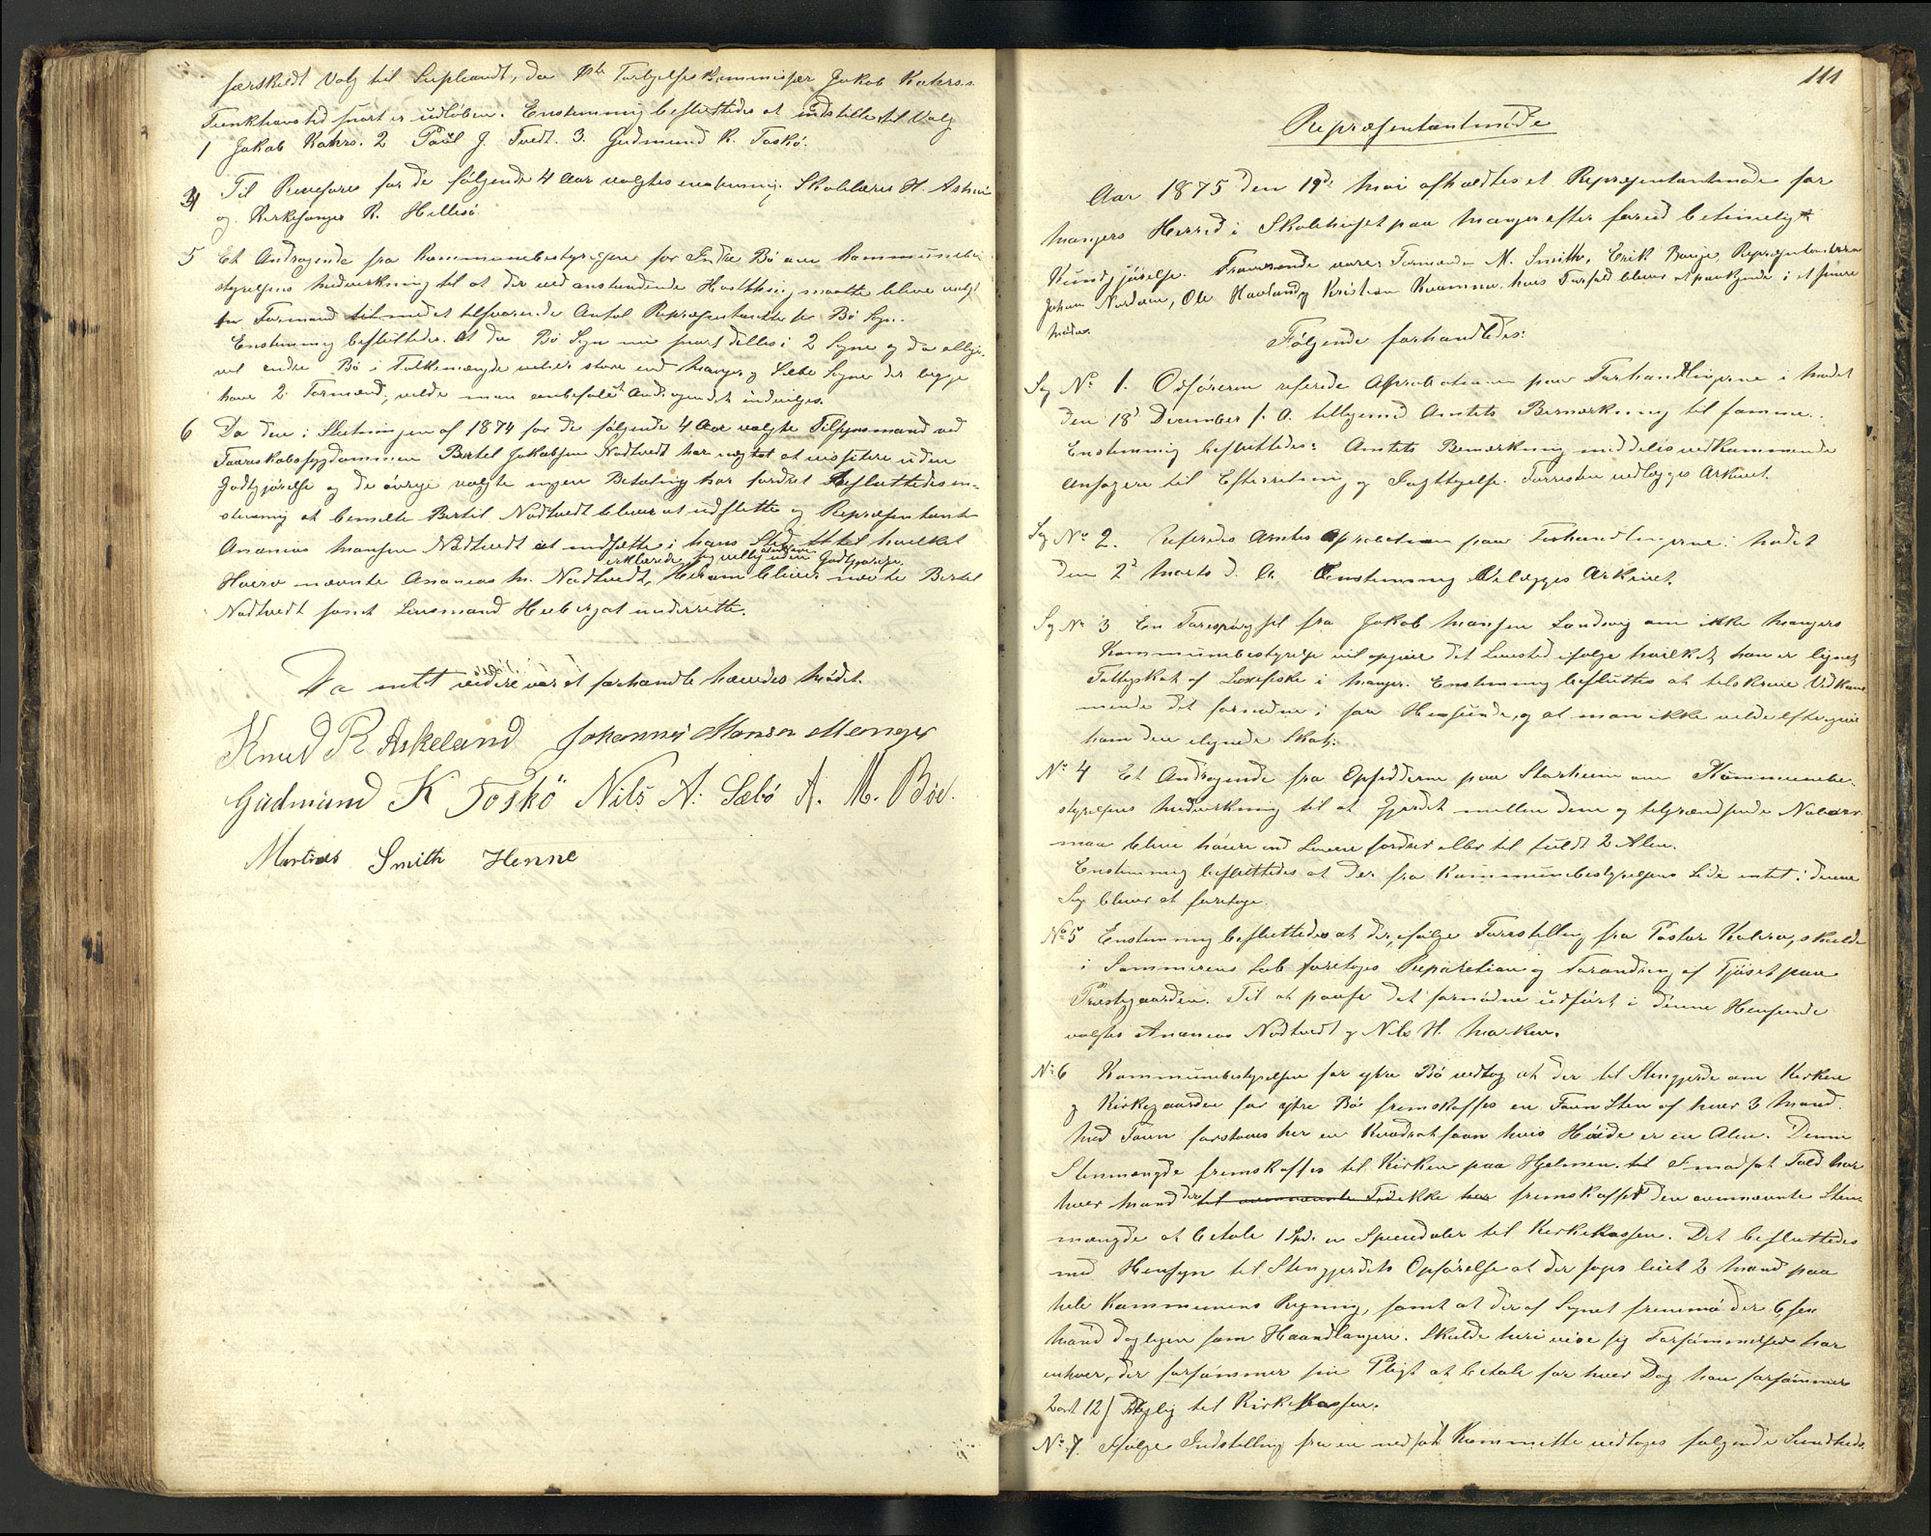 særskildt Valg til Supleant, da Forligelseskommissær Jakob Kahrs's
Funktionstid snart er udløben. Enstemmig besluttedes at indstille til Valg
1 Jakob Kahrs. 2 Paul J. Tvedt. 3. Gudmund K. Toskö.
4 Til Revisorer for de følgende 4 Aar valgtes enstemmig: Skolelærer H. Askeland
og Kirkesanger R. Hillesö
5 Et Andragende fra Kommunebestyrelsen for Indre Bö om Kommunebe-
styrelsens Medvirkning til at der ved anstundende Hostthing maatte blive valgt
en Formand med et tilsvarende Antal Repræsentanter for Bö Sogn.
Enstemmig besluttedes: At da Bö Sogn nu snart deles i 2 Sogne og da allige-
vel indre Bö i Folkemængde bliver større end Manger og Sæbö Sogne der begge
have 2 Formænd, vilde man anbefale at Andragendet indvilges.
6 Da den i Slutningen af 1874 for de følgende 4 Aar valgte Tilsynsmand ved
Faareskabsygdommen Bertel Jakobsen Nødtvedt har nægtet at visitere uden
Godtgjørelse og de øvrige valgte ingen Betaling har fordret besluttedes en-
stemmig at bemeldte Bertil Nødtvedt bliver at udslette og Repræsentant
Ananias Mansen Nødtvedt at indsætte i hans Sted til hvilket
erklærede sig villig uden Godtgjørelse.
Hverv nævnte Ananias M. Nødtvedt, Herom bliver nævnte Bertel
Nødtvedt samt Lensmand Heiberg at underrette.
Da intet videre var at forhandle hævedes Mödet.
Knud R Askeland Johannes Monsen Manger
Gudmund K Toskö Nils A. Sæbö A. M. Böe.
Martines Smith Henne
111
Repræsentantmøde
Aar 1875 den 19de Mai afholdtes et Repræsentantmøde for
Mangers Herred i Skolehuset paa Manger efter forud betimelig
Kundgjørelse. Fraværende vare: Formænd M. Smith, Erik Bauge, Repræsentanterne
Johan Nordøen, Ole Havland og Kristian Kvamme, hvis Forfald bliver at paakjende i et senere
Møde.
Følgende forhandledes:
Sag No 1. Ordføreren referede Approbationen paa Forhandlingerne i Mødet
den 18d December f. A. tilligemed Amtets Bemærkning til samme.
Enstemmig besluttedes: Amtets Bemærkning meddeles vedkommende
Ansøgere til Efterretning og Iagttagelse. Forresten vedlægges Arkivet.
Sag No 2. Referedes Amtets Aprobation paa Forhandlingerne i Mødet
den 2d Marts d. A. Enstemmig vedlægges Arkivet.
Sag No 3 En Forespørgsel fra Jakob Mansen Landsvig om ikke Mangers
Kommunebestyrelse vil opgive det Lovsted ifølge hvilket han er lignet
Fattigskat af Laxefiske i Manger. Enstemmig besluttes at tilskrive Vedkom-
mende det fornødne i saa Henseende, og at man ikke vilde eftergive
ham den ilignede Skat.
No 4 Et Andragende fra Opsidderne paa Storheim om Kommunebe-
styrelsens Medvirkning til at Gjerdet mellem dem og tilgrændsende Naboer
maa blive høiere end Loven fordrer eller til fuldt 2 Alen.
Enstemmig besluttedes at der fra Kommunebestyrelsens Side intet i denne
Sag bliver at foretage.
No 5 Enstemmig besluttedes at der, ifølge Forestilling fra Pastor Kahrs, skulde
i Sommerens Løb foretages Reparation og Forandring af Fjøset paa
Præstegaarden. Til at paase det fornødne udført i denne Henseende
valgtes Ananias Nødtvedt og Nils H. Marken.
No 6 Kommunebestyrelsen for ytre Bö vedtog at der til Stengjerde om Kirken
og Kirkegaarden for ytre Bö fremskaffes en Favn Sten af hver 3 Mand.
Med Favn forstaaes her en Kvadratfavn hvis Høide er en Alen. Denne
Stenmængde fremskaffes til Kirken paa Hjelmen. til modsat Fald har
hver Mand der til ovennævnte Tid ikke har fremskaffet den ovennævnte Sten
mængde at betale 1 Spd. en Speciedaler til Kirkekassen. Det besluttedes
med Hensyn til Stengjerdets Opførelse at der faaes leiet 2 Mand paa
hele Kommunens Regning, samt at der af Sognet fremmøder 6 sex
Mand dagligen som Haandlangere. Skulde heri vise sig Forsømmelse har
enhver, der forsømmer sin Pligt at betale for hver Dag han forsømmer
2 ort 12 daglig til Kirkekassen.
No 7. Ifølge Indstilling fra en nedsat Kommitte vedtoges følgende Sundheds-